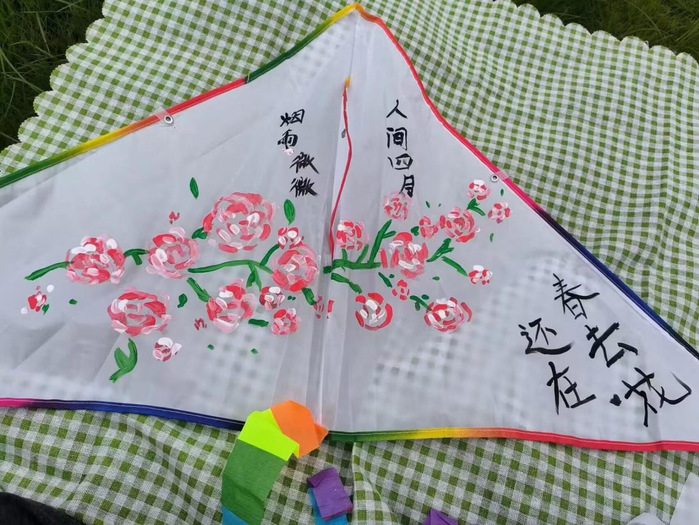 人间四月
烟雨微微
春去花
还在